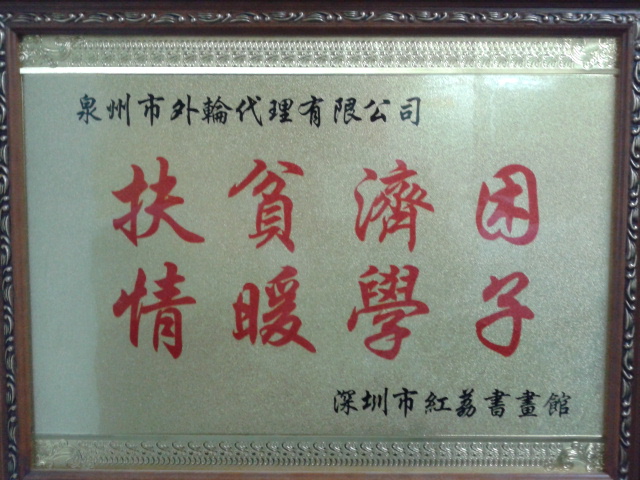 泉州市外輪代理有限公司
扶貧濟困
情暖學子
深圳市紅荔書畫館